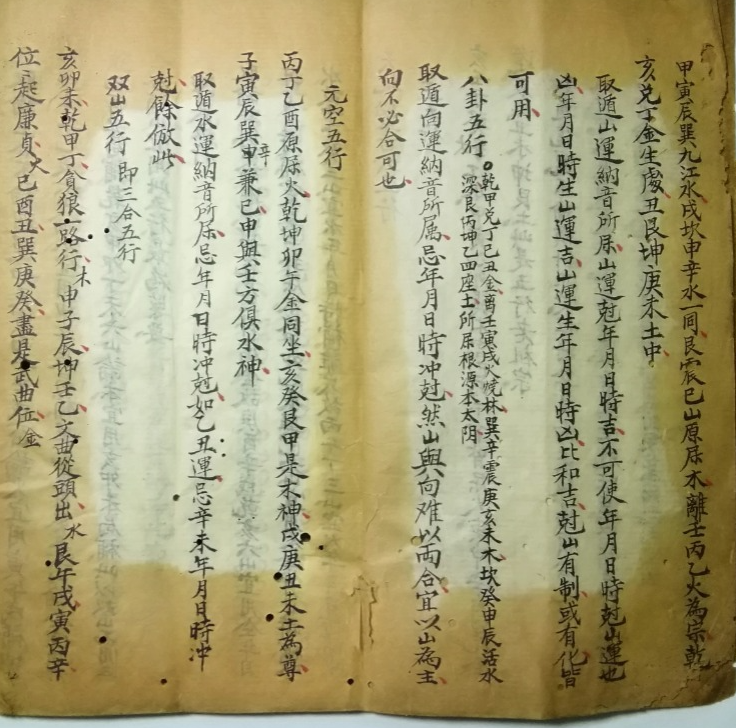 甲寅辰巽九江水戌坎申辛水一同艮震巳山原屈木離壬丙乙火為宗乾
亥兌丁金生處丑艮坤庚未土中
取遁山運納音所屈山運尅年月日時吉不可使年月日時尅山運也
凶年月日時生山運吉山運生年月日時凶比和吉尅山有制或有化皆
可用
八卦五行。乾甲兌丁巳丑金酉壬寅戌火燒林巽辛震庚亥未木坎癸申辰活水
深艮丙坤乙四座土所居根源本太阴
取遁向運納音所属忌年月日時冲尅然山與向难以両合宜以山為主
向不必合可也
元空五行
丙丁乙酉原屈火乾坤卯午金同坐亥癸艮甲是木神戌庚丑未土為尊
子寅辰巽辛兼巳申與壬方俱水神
取遁水運納音所屈忌年月日時冲尅如乙丑運忌辛未年月日時冲
尅餘倣此
双山五行 即三合五行
亥卯未乾甲丁貪狼一路行木申子辰坤壬乙文曲從頭出水艮午戌寅丙辛
位位起廉貞火巳酉丑巽庚癸盡是武曲位金